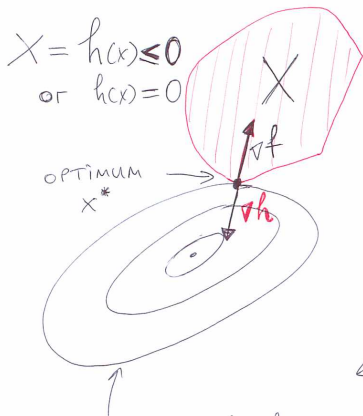 X = h(x) ≤ 0
or h(x) = 0
X
∇f
OPTIMUM
x*
∇h